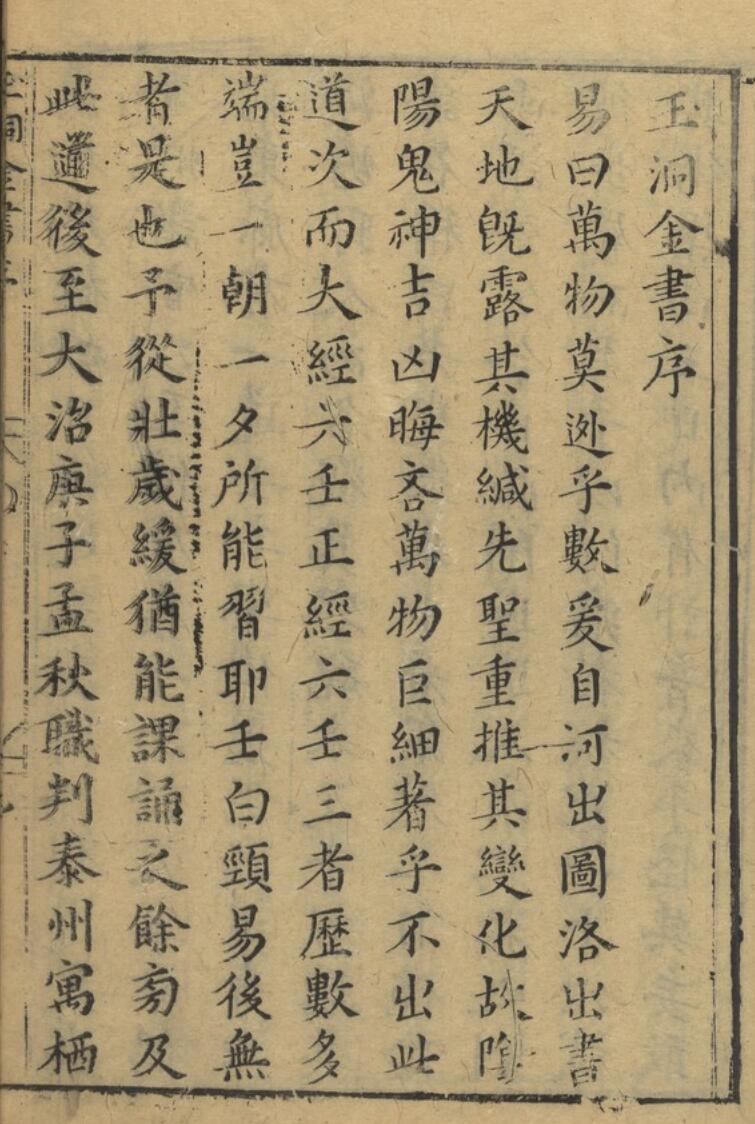 玉洞金書序
易曰萬物莫逃乎數爰自河出圖洛出書
天地旣露其機緘先聖重推其變化故陰
陽鬼神吉凶晦吝萬物巨細著乎不出此
道次而大經六壬正經六壬三者歷數多
端豈一朝一夕所能習耶壬白頸易後無
者是也予從壯歲緩猶能課誦之餘旁及
此道後至大治庚子孟秋職判泰州寓栖